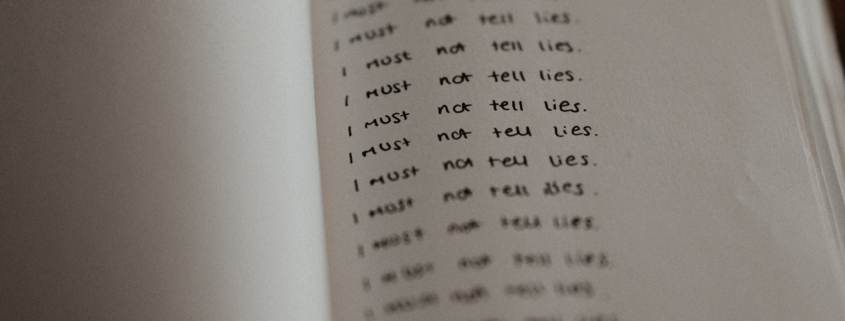 I must
I must not tell lies.
I must not tell lies.
I must not tell lies.
I must not tell lies.
I must not tell lies.
I must not tell lies.
I must not tell lies.
I must not tell lies.
I must not tell lies.
not tell lies.